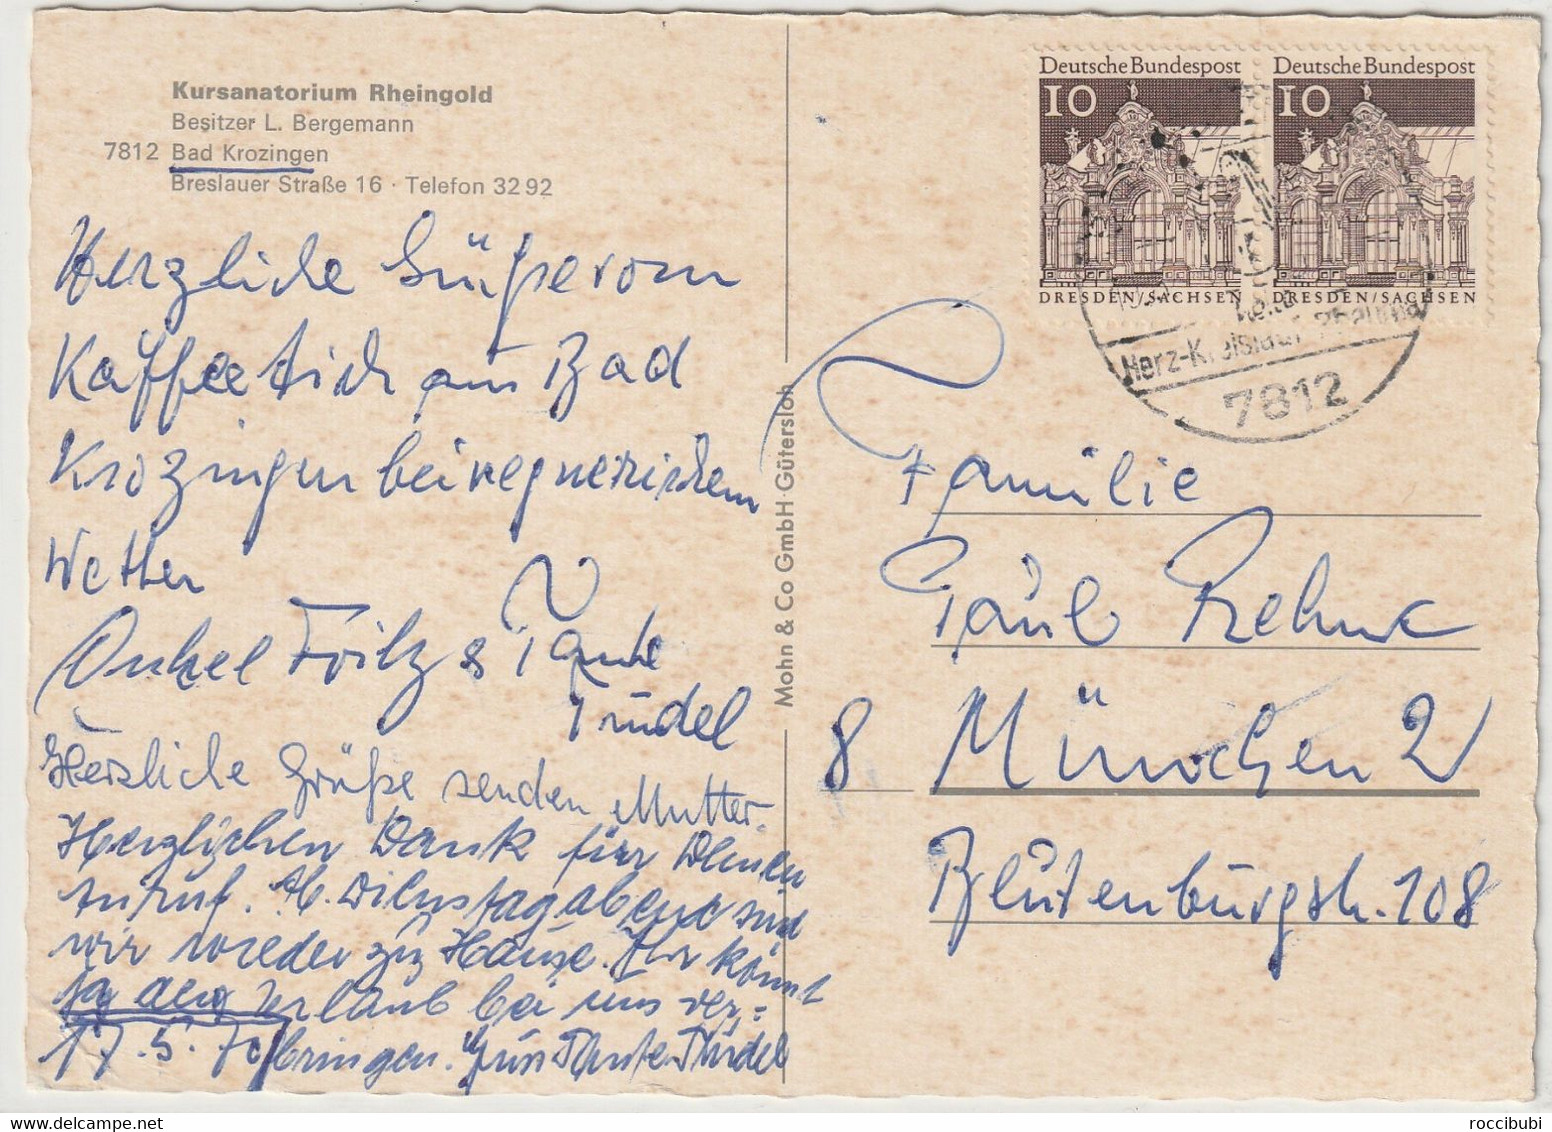 Kursanatorium Rheingold
Besitzer L. Bergemann
7812 Bad Krozingen
Breslauer Straße 16 · Telefon 32 92
Herzliche Grüße vom
Kaffeetisch aus Bad
Krozingen bei regnerischem
Wetter
Onkel Fritz & Tante
Trudel
Herzliche Grüße senden Mutter.
Herzlichen Dank für Deinen
Anruf. Ab Dienstagabend sind
wir wieder zu Hause. Ihr könnt
ja den Urlaub bei uns ver=
bringen. Gruß Tante Trudel
17.5.70
Mohn & Co GmbH · Gütersloh
Deutsche Bundespost
10
DRESDEN/SACHSEN
Deutsche Bundespost
10
DRESDEN/SACHSEN
Herz-Kreislauf-Rheuma
7812
Familie
Paul
8 München 2
Blütenburgstr. 108
roccibubi